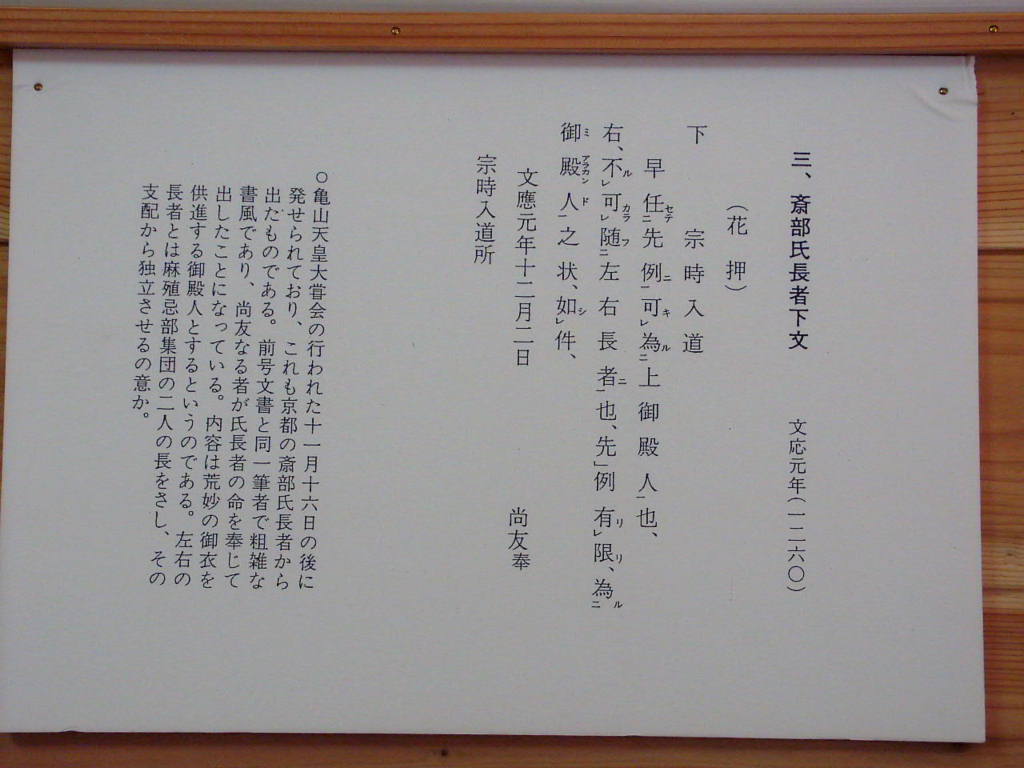 三、斎部氏長者下文　文応元年(一二六〇)
(花押)
下　宗時入道
早任二セテ先例一ニ可レキ為二ル上御殿人一也、
右、不レル可レカラ随二フ左右長者一ニ也、先」例有レリ限リ、為二ル
御ミ殿アラカン人ド一之状、如レシ件、
文應元年十二月二日　尚友奉
宗時入道所
○亀山天皇大嘗会の行われた十一月十六日の後に
発せられており、これも京都の斎部氏長者から
出たものである。前号文書と同一筆者で粗雑な
書風であり、尚友なる者が氏長者の命を奉じて
出したことになっている。内容は荒妙の御衣を
供進する御殿人とするというのである。左右の
長者とは麻殖忌部集団の二人の長をさし、その
支配から独立させるの意か。